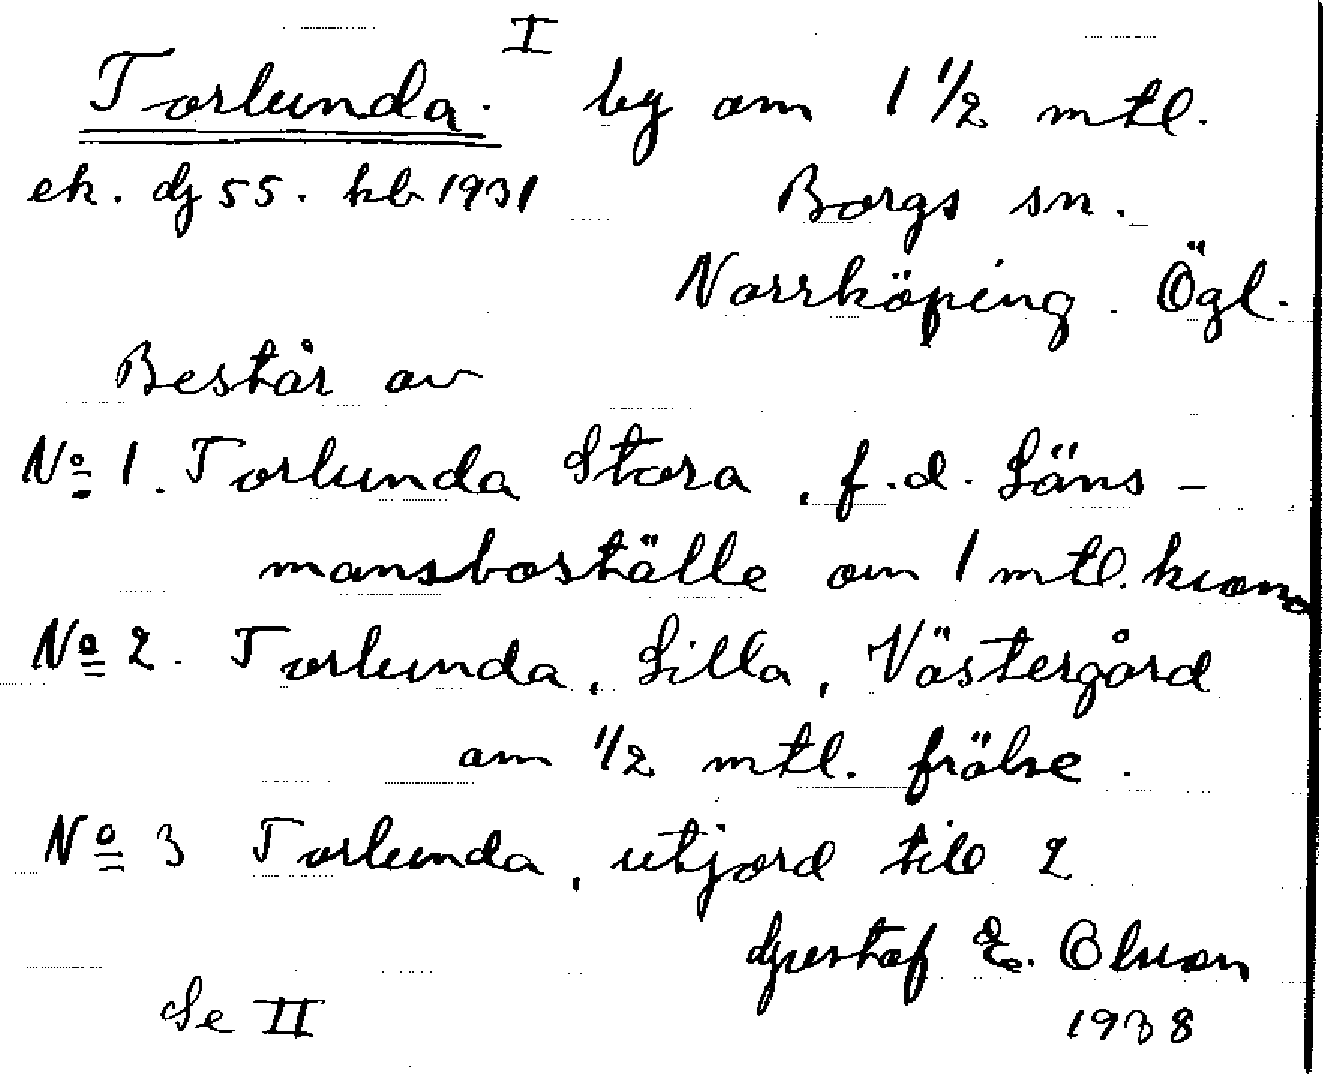 I
Torlunda. by om 1 1/2 mtl.
ek. dg 55. kb 1931 Borgs sn.
Norrköping. Ögl.
Består av
No 1. Torlunda Stora, f.d. Läns-
mansboställe om 1 mtl. krono
No 2. Torlunda, Lilla, Västergård
om 1/2 mtl. frälse.
No 3 Torlunda, utjord till 2
Gustaf E. Olsson
Se II 1938